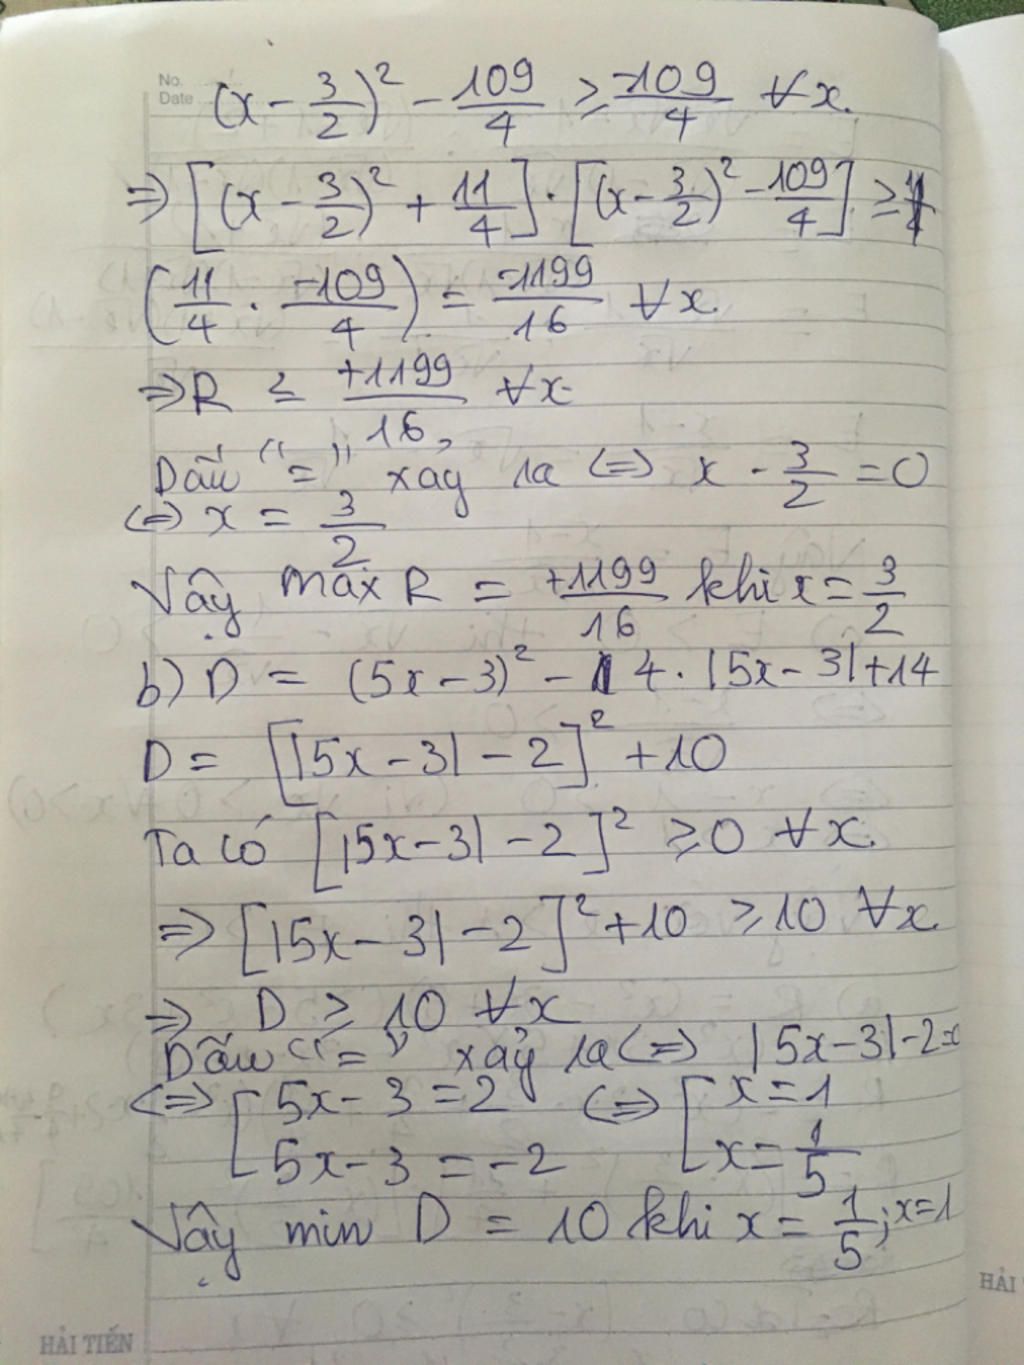 No.
Date
(x - 3/2)² - 109/4 ≥ -109/4 ∀x.
⇒ [(x - 3/2)² + 11/4] . [(x - 3/2)² - 109/4] ≥
(11/4 . -109/4) = -1199/16 ∀x.
⇒ R ≤ +1199/16, ∀x.
Dấu "=" xảy ra ⇔ x - 3/2 = 0
⇔ x = 3/2
Vậy max R = +1199/16 khi x = 3/2
b) D = (5x - 3)² - 4 . |5x - 3| + 14
D = [|5x - 3| - 2]² + 10
Ta có [|5x - 3| - 2]² ≥ 0 ∀x.
⇒ [|5x - 3| - 2]² + 10 ≥ 10 ∀x.
⇒ D ≥ 10 ∀x
Dấu "=" xảy ra ⇔ |5x - 3| - 2
⇔ [ 5x - 3 = 2 ⇔ [ x = 1
5x - 3 = -2 x = 1/5
Vậy min D = 10 khi x = 1/5 ; x = 1
HẢI TIẾN
HẢI